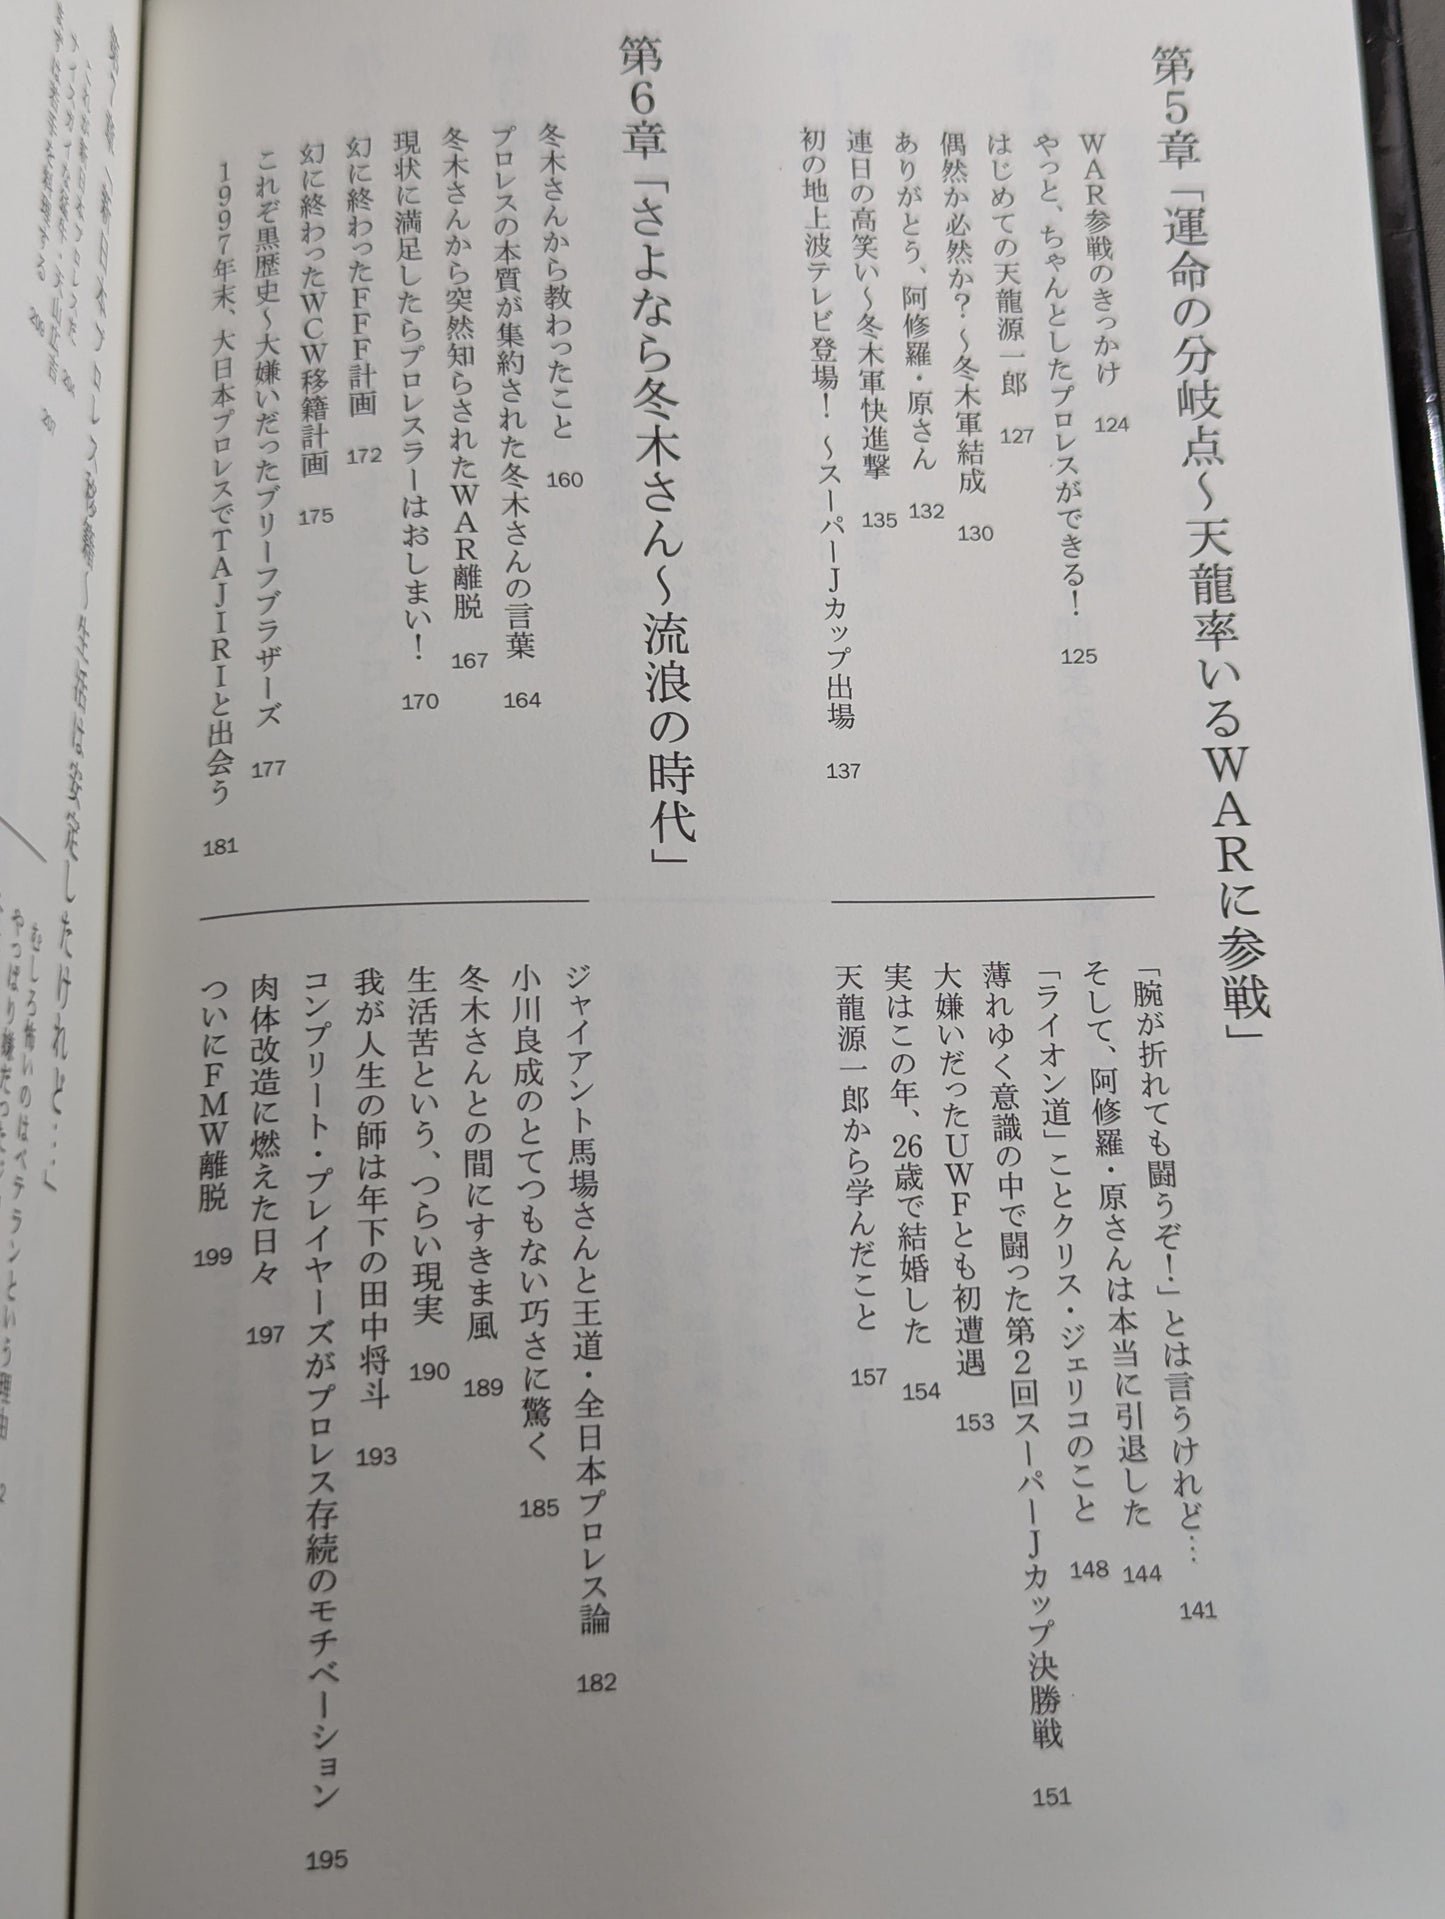 第5章「運命の分岐点〜天龍率いるWARに参戦」
WAR参戦のきっかけ 124
やっと、ちゃんとしたプロレスができる! 125
はじめての天龍源一郎 127
偶然か必然か?〜冬木軍結成 130
ありがとう、阿修羅・原さん 132
連日の高笑い〜冬木軍快進撃 135
初の地上波テレビ登場!〜スーパーJカップ出場 137
「腕が折れても闘うぞ!」とは言うけれど… 141
そして、阿修羅・原さんは本当に引退した 144
「ライオン道」ことクリス・ジェリコのこと 148
薄れゆく意識の中で闘った第2回スーパーJカップ決勝戦 151
大嫌いだったUWFとも初遭遇 153
実はこの年、26歳で結婚した 154
天龍源一郎から学んだこと 157
第6章「さよなら冬木さん〜流浪の時代」
冬木さんから教わったこと 160
プロレスの本質が集約された冬木さんの言葉 164
冬木さんから突然知らされたWAR離脱 167
現状に満足したらプロレスラーはおしまい! 170
幻に終わったFFF計画 172
幻に終わったWCW移籍計画 175
これぞ黒歴史〜大嫌いだったブリーフブラザーズ 177
1997年末、大日本プロレスでTAJIRIと出会う 181
ジャイアント馬場さんと王道・全日本プロレス論 182
小川良成のとてつもない巧さに驚く 185
冬木さんとの間にすきま風 189
生活苦という、つらい現実 190
我が人生の師は年下の田中将斗 193
コンプリート・プレイヤーズがプロレス存続のモチベーション 195
肉体改造に燃えた日々 197
ついにFMW離脱 199
移籍〜生活は安定したけれど…」
204
207
209
むしろ怖いのはベテランという理由